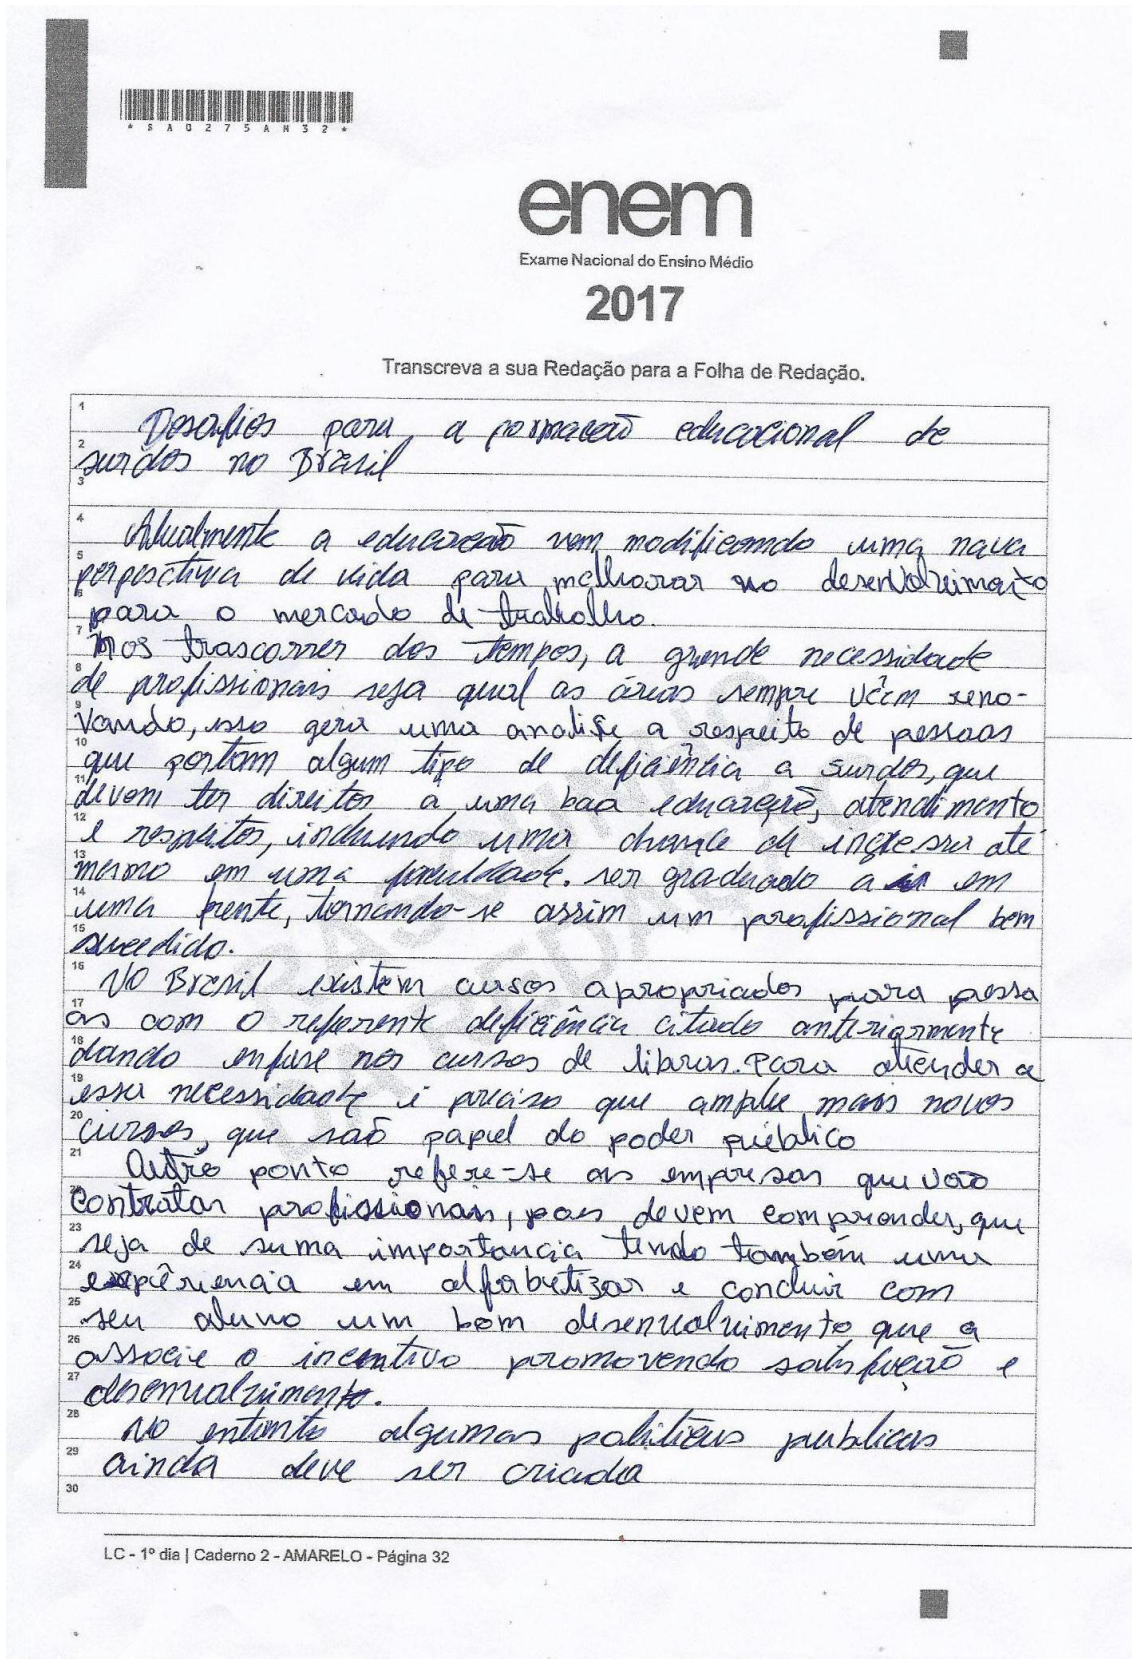 *SA0275AM32*
enem
Exame Nacional do Ensino Médio
2017
Transcreva a sua Redação para a Folha de Redação.
1 Desafios para a formação educacional de
2 surdos no Brasil
3
4 Atualmente a educação vem modificando uma nova
5 perpesctiva de vida para melhorar no desenvolvimento
6 para o mercado de trabalho.
7 Nos trascorrer dos tempos, a grande necessidade
8 de profissionais seja qual as áreas sempre vêem reno-
9 vando, isso gera uma analise a respeito de pessoas
10 que portam algum tipo de deficiência a surdos, que
11 devem ter direitos a uma boa educação, atendimento
12 e respeitos, incluindo uma chance de ingressa até
13 mesmo em uma faculdade. ser graduado a em
14 uma frente, tornando-se assim um profissional bem
15 sucedido.
16 No Brasil existem cursos apropriados para pessa
17 as com o referente deficiência citado anteriormente
18 dando enfase nos cursos de libras. Para atender a
19 essa necessidade é preciso que amplie mais novos
20 cursos, que são papel do poder público
21 Outro ponto refere-se as empresas que vão
22 contratar profissionais, pois devem comprender, que
23 seja de suma importancia tendo também uma
24 expêriencia em alfabetizar e concluir com
25 seu aluno um bom desenvolvimento que a
26 associe o incentivo promovendo satisfação e
27 desenvolvimento.
28 No entanto algumas politicas publicas
29 ainda deve ser criada
30
LC - 1º dia | Caderno 2 - AMARELO - Página 32